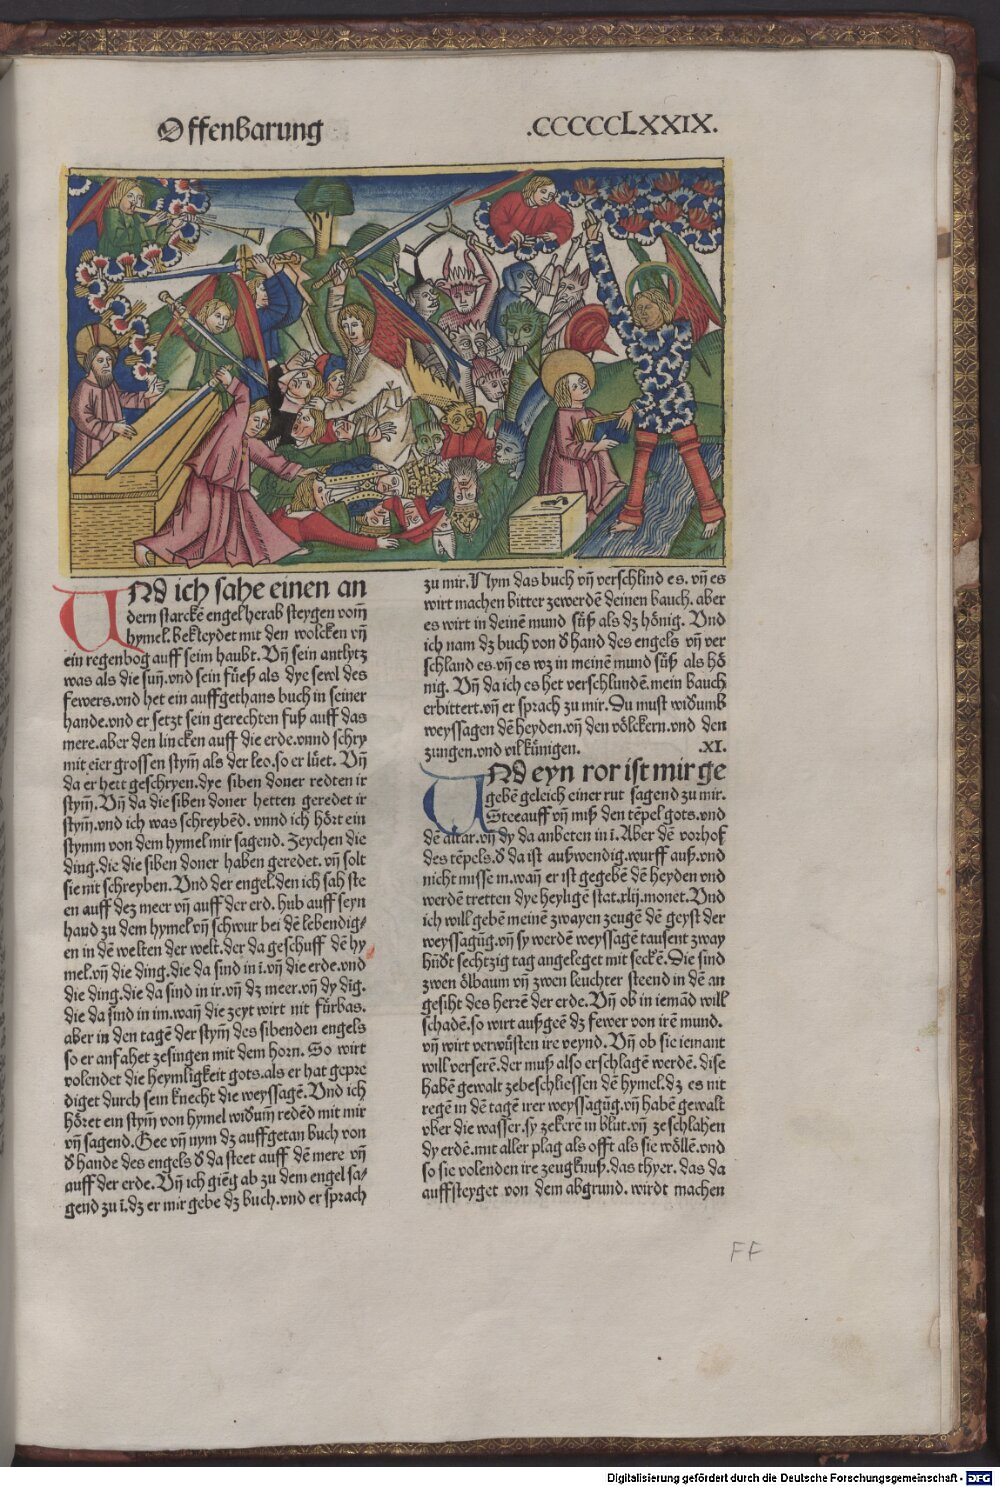 Offenbarung
.CCCCCLXXIX.
UNd ich sahe einen an
dern starckē engel herab steygen vom̄
hymel. bekleydet mit den wolcken vn̄
ein regenbog auff seim haubt. Vn̄ sein antlytz
was als die sun̄. vnd sein füeß als dye sewl des
fewers. vnd het ein auffgethans buch in seiner
hande. vnd er setzt sein gerechten fuß auff das
mere. aber den lincken auff die erde. vnnd schry
mit eīer grossen stym̄ als der leo. so er lüet. Vn̄
da er hett geschryen. dye siben doner redten ir
stym̄. Vn̄ da die siben doner hetten geredet ir
stym̄. vnd ich was schreybēd. vnnd ich hört ein
stymm von dem hymel mir sagend. Zeychen die
ding. die die siben doner haben geredet. vn̄ solt
sie nit schreyben. Vnd der engel. den ich sah ste
en auff dez meer vn̄ auff der erd. hub auff seyn
hand zu dem hymel. vn̄ schwur bei dē lebendig-
en in dē welten der welt. der da geschuff dē hy
mel. vn̄ die ding. die da sind in ī. vn̄ die erde. vnd
die ding. die da sind in ir. vn̄ dz meer. vn̄ dy dīg.
die da sind in im. wan̄ die zeyt wirt nit fürbas.
aber in den tagē der stym̄ des sibenden engels
so er anfahet zesingen mit dem horn. So wirt
volendet die heymligkeit gots. als er hat gepre
diget durch sein knecht die weyssagē. Vnd ich
höret ein stym̄ von hymel widum̄ redēd mit mir
vn̄ sagend. Gee vn̄ nym dz auffgetan buch von
d hande des engels d da steet auff dē mere vn̄
auff der erde. Vn̄ ich gieng ab zu dem engel sa-
gend zu ī. dz er mir gebe dz buch. vnd er sprach
zu mir. Nym das buch vn̄ verschlind es. vn̄ es
wirt machen bitter zewerdē deinen bauch. aber
es wirt in deinē mund süß als dz hönig. Vnd
ich nam dz buch von d hand des engels vn̄ ver
schland es. vn̄ es wz in meinē mund süß als hö
nig. Vn̄ da ich es het verschlundē. mein bauch
erbittert. vn̄ er sprach zu mir. Du must widumb
weyssagen dē heyden. vn̄ den völckern. vnd den
zungen. vnd vil künigen. .XI.
UNd eyn ror ist mir ge
gebē geleich einer rut sagend zu mir.
Stee auff vn̄ miß den tēpel gots. vnd
dē altar. vn̄ dy da anbeten in ī. Aber dē vorhof
des tēpels. d da ist außwendig. wurff auß. vnd
nicht misse in. wan̄ er ist gegebē dē heyden vnd
werdē tretten dye heyligē stat. xlij. monet. Vnd
ich will gebē meinē zwayen zeugē dē geyst der
weyssagūg. vn̄ sy werdē weyssagē tausent zway
hūdt sechtzig tag angeleget mit seckē. Die sind
zwen ölbaum vn̄ zwen leuchter steend in dē an
gesiht des herzē der erde. Vn̄ ob in iemād will
schadē. so wirt außgeē dz fewer von irē mund.
vn̄ wirt verwüsten ire veynd. Vn̄ ob sie iemant
will verserē. der muß also erschlagē werdē. dise
habē gewalt zebeschliessen dē hymel. dz es nit
regē in dē tagē irer weyssagūg. vn̄ habē gewalt
vber die wasser. sy zekerē in blut. vn̄ zeschlahen
dy erdē. mit aller plag als offt als sie wöllē. vnd
so sie volenden ire zeugknuß. das thyer. das da
auffsteyget von dem abgrund. wirdt machen
FF
Digitalisierung gefördert durch die Deutsche Forschungsgemeinschaft - DFG